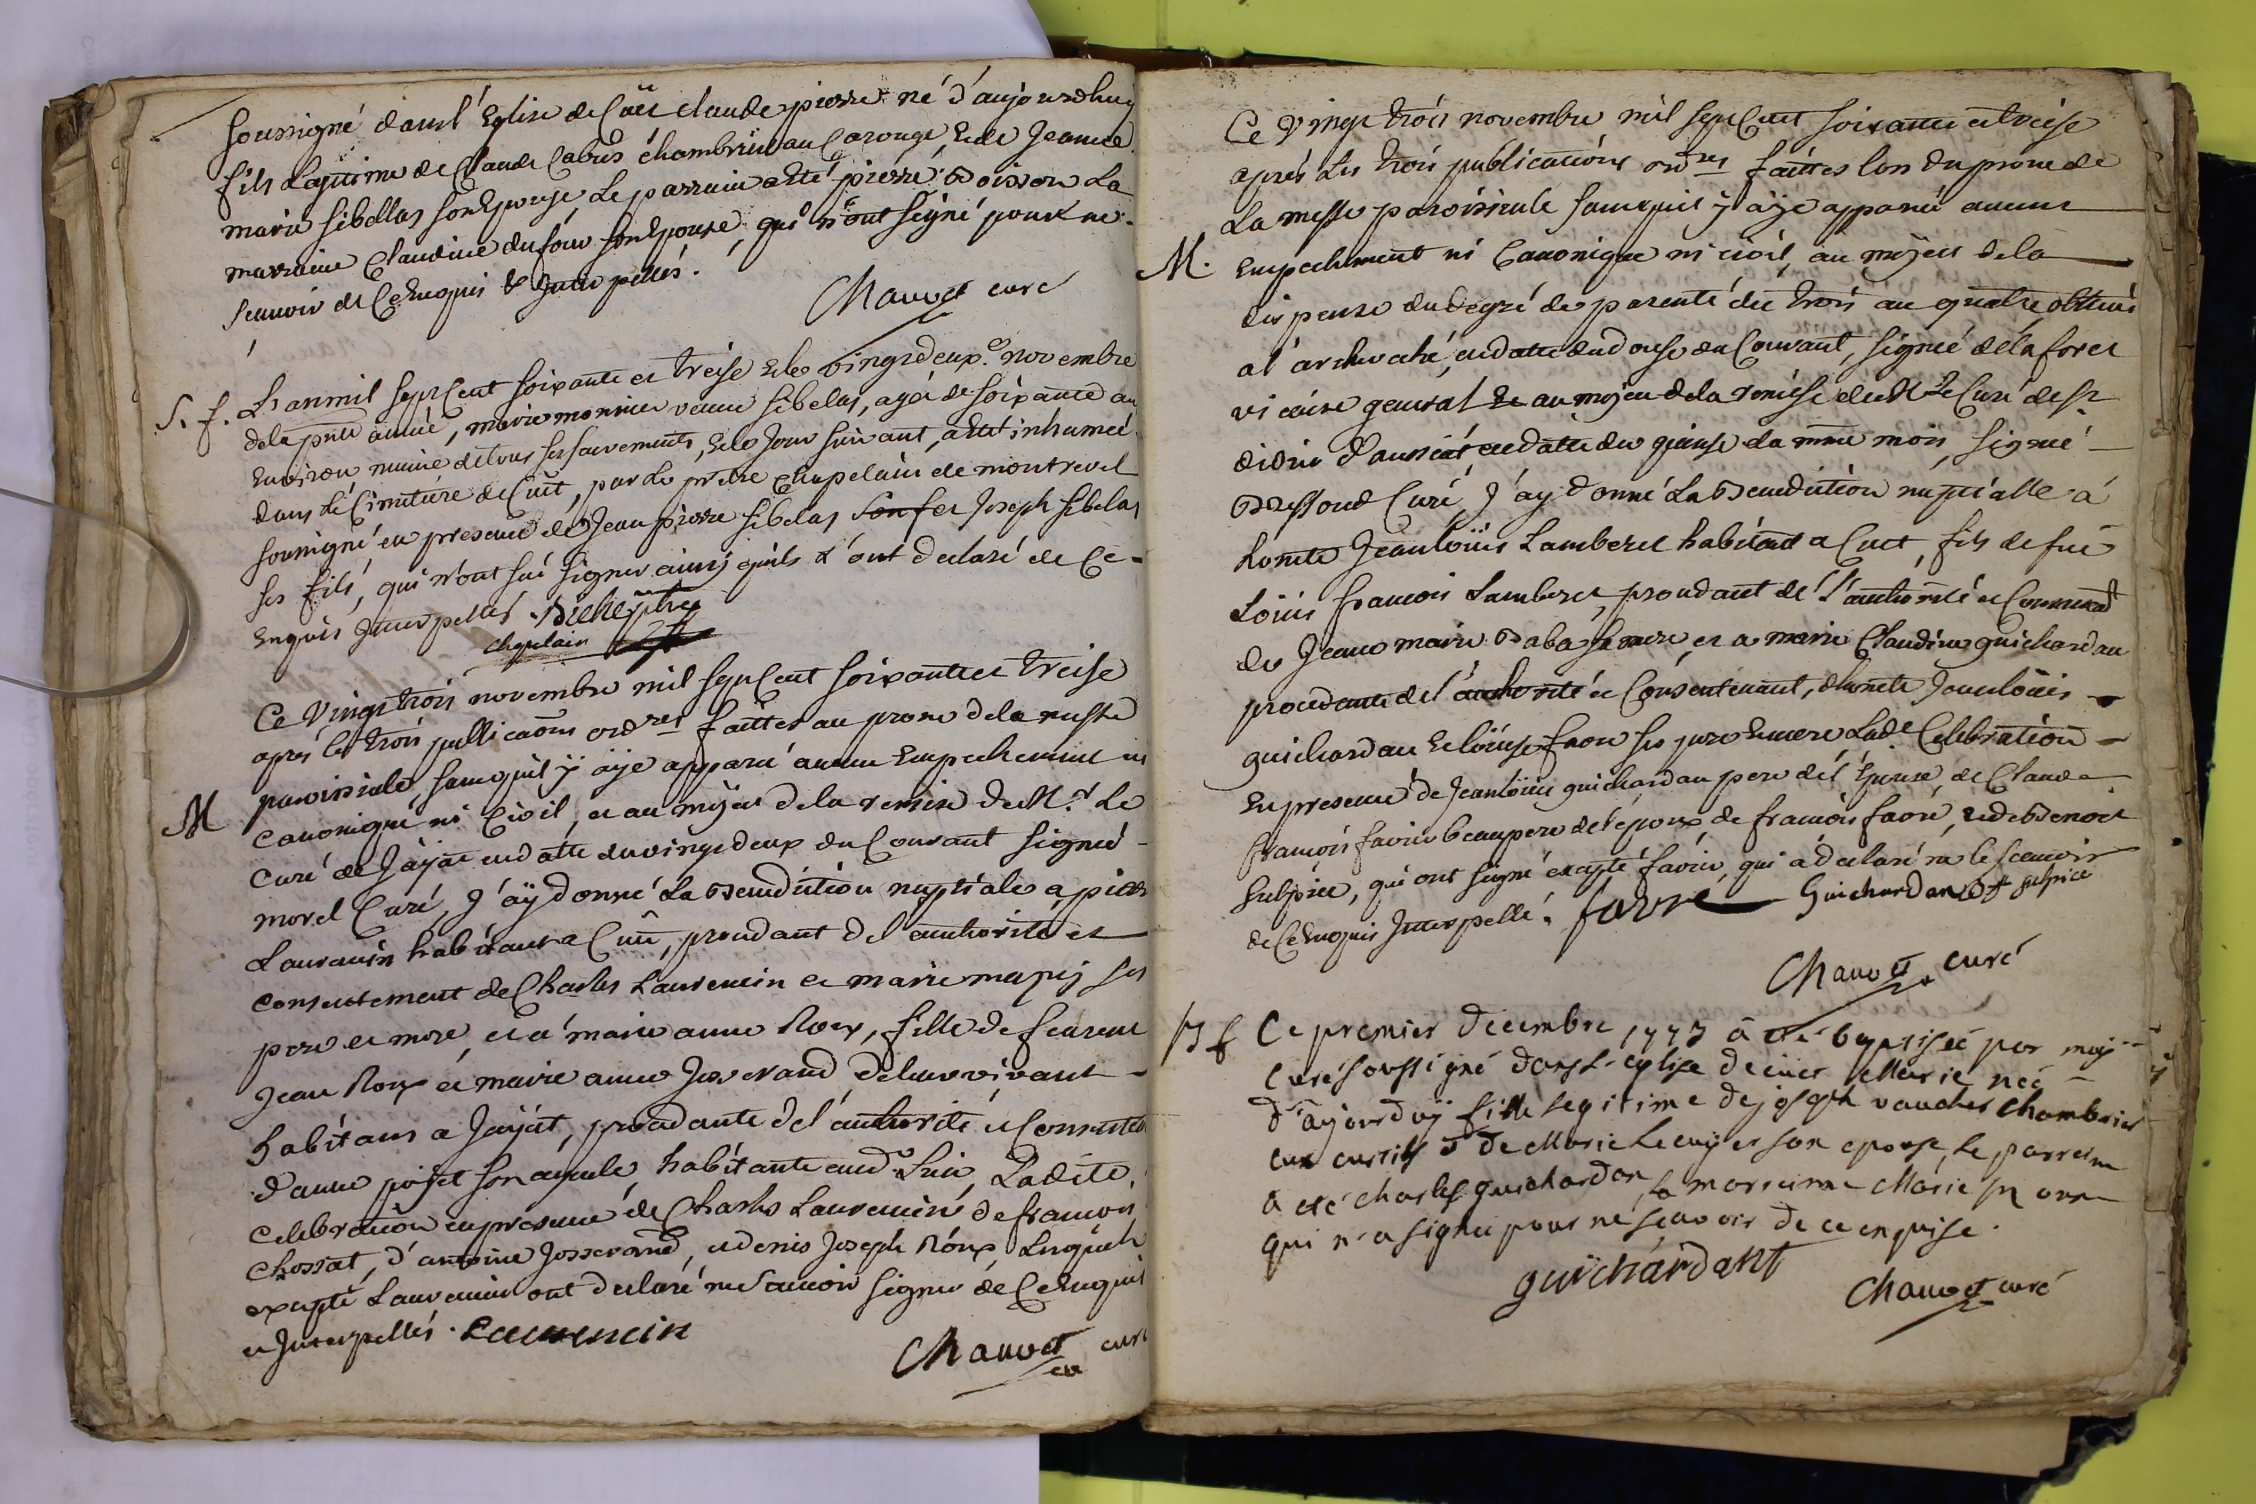 soussigné dans l'Eglise de Cuët claude pierre né d'aujourdhuy
fils Legitime de Claude Cabus chambrier au Carouge, Et de Jeanne
marie sibellas son Epouse, Le parrain a Eté pierre Boisson La
marraine Claudine dufour son Epouse, qui n'ont signé pour ne
scauoir de Ce Enquis & Interpellés.
Chauvet curé
S. f. L'an mil sept Cent soixante et treise Et le vingt deux.e novembre
de la pnte année, marie monnier veuve sibelas, agée de soixante an
Environ munie de tous ses sacrements, Et le Jour suivant, a Eté inhumée
dans le Cimetiere de Cuët, par Le prêtre Chapelain de montrevel
soussigné en presence de Jean pierre sibelas et Joseph sibelas
ses fils, qui n'ont sçû signer ainsy quils l'ont declaré de Ce
Enquis Interpellés.
Chapelain
Ce Vingt trois novembre mil sept Cent soixante et treise
après les trois publicaons ordres faittes au prone de la messe
M paroissiale, sans quil ÿ aÿe apparu aucun Empechement ni
canonique ni Civil, et au moyen de la remise de Mr. Le
Curé de Jaÿat en datte du vingt deux du Courant signé
morel Curé, J'aÿ donné La Benediction nuptiale a pierre
Laurencin habitant a Cuët, procedant de l'authorité et
consentement de Charles Laurencin et marie mapuy ses
pere et mere, et a marie anne Roux, fille de feurent
Jean Roux et marie anne Josserand de leur vivant
habitans a Jayat, procedante de l'authorité et Consentem
d'anne poiset son ayeule, habitante aud. Lieu, Ladite
Celebration en presence de Charles Laurencin de francois
chossat, d'antoine Josserand, et denis Joseph Roux Lesquels
excepté Laurencin ont declaré ne scauoir signer de Ce Enquis
et Interpellés. Laurencin
Chauvet curé
Ce Vingt trois novembre mil sept Cent soixante et treise
après Les trois publications ordres faittes lors du prone de
La messe paroissiale sans quil ÿ aÿe apparu aucun
M. Empechement ni Canonique ni civil, au moyen de la
dispense du degré de parenté du trois au quatre obtenüe
a l'archeveché, en datte du douse du Courant, signée delaforet
vicaire general Et au moyen de la remise de Mr Le Curé de St
didier d'aussiat en datte du quinse du même mois, signé
Curé, J'ay donné La Benediction nuptialle a
honnête Jean loüis Lamberet habitant a Cuet, fils de feu
Loüis francois Lamberet, procedant de l'authorité et Consentemt
de Jeanne marie Baba sa mere, et a marie Claudine guichardan
procedante de l'authorité et Consentement, d'honnete Jean loüis
guichardan et loüise favre ses pere et mere Lade. Celebration
En presence de Jean loüis guichardan pere de l'Epouse de Claude
francois favier beaupere de l'époux de francois favre, et de Benoit
sulpice, qui ont signé excepté favier, qui a declaré ne le scauoir
de Ce Enquis Interpellé. favre Guichardan Bt sulpice
Chauvet curé
B f Ce premier decembre 1773 à été baptisée par moy
curé soussigné dans l'eglise de cüet Marie née
d'aujourduÿ fille legitime de joseph vaucher Chambrier
aux curtils & de Marie Lecuyer son epouse, Le parrain
a eté charles guichardan, la marraine Marie
qui n'a signée pour ne sçavoir de ce enquise.
guichardant
Chauvet curé